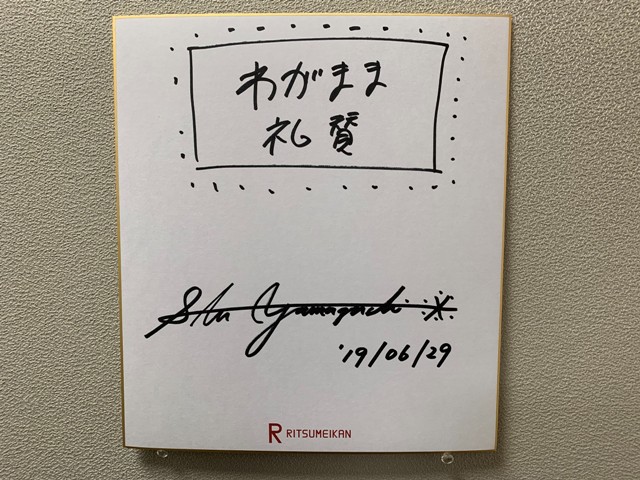 わがまま
礼賛
Shu Yamaguchi
'19/06/29
R RITSUMEIKAN